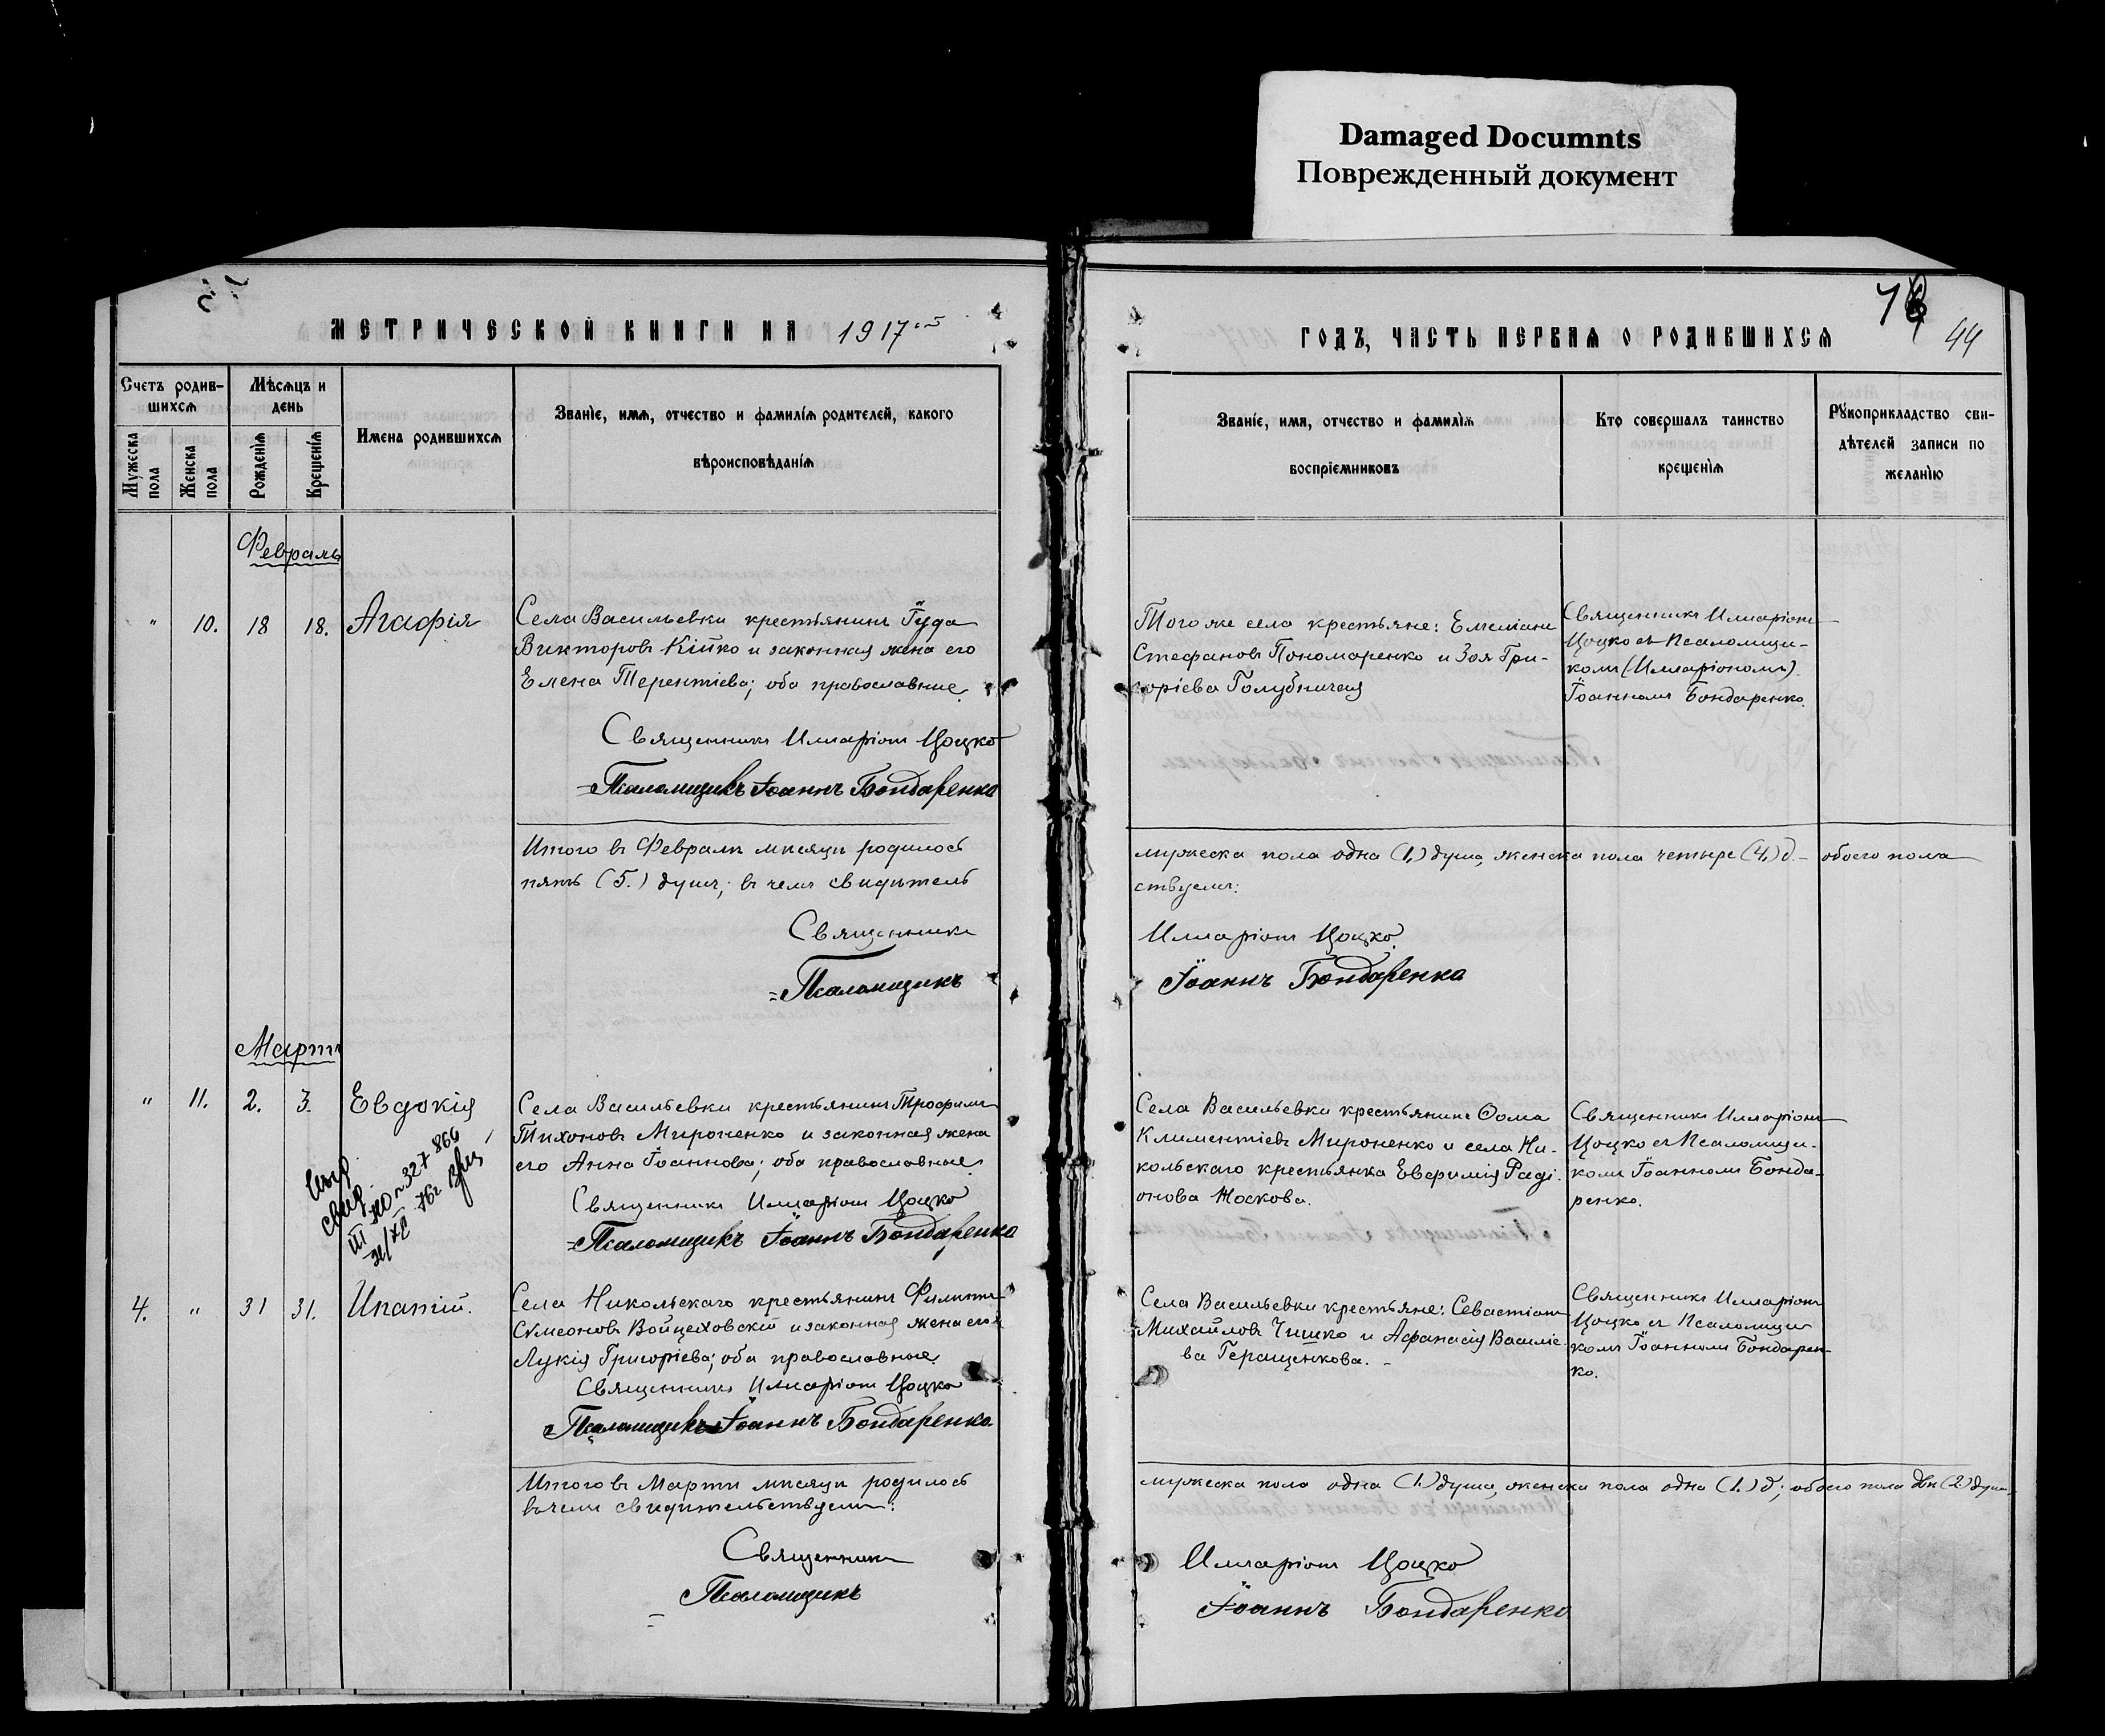 Damaged Documnts
Поврежденный документ
МЕТРИЧЕСКОЙ КНИГИ НА 1917
ГОДЪ, ЧАСТЬ ПЕРВАЯ О РОДИВШИХСЯ
44
Счетъ родив-
шихся
Мужеска пола
Женска пола
Мѣсяцъ и
день
Рожденія
Крещенія
Имена родившихся
Званіе, имя, отчество и фамилія родителей, какого
вѣроисповѣданія
Званіе, имя, отчество и фамилія
воспріемниковъ
Кто совершалъ таинство
крещенія
Рукоприкладство сви-
дѣтелей записи по
желанію
Февраль
" 10. 18 18. Агафія
Села Васильевки крестьянинъ Іуда
Викторовъ Кійко и законная жена его
Елена Терентіева; оба православные.
Священникъ Илларіонъ Цоцко
Псаломщикъ Іоаннъ Бондаренко
Того же села крестьяне: Емеліанъ
Стефановъ Пономаренко и Зоя Гри-
горіева Голубничая
Священникъ Илларіонъ
Цоцко съ Псаломщи-
комъ (Илларіономъ).
Іоанномъ Бондаренко.
Итого въ Февралѣ мѣсяцѣ родилось
мужеска пола одна (1.) душа, женска пола четыре (4.) д. обоего пола
пять (5.) душъ; въ чемъ свидѣтель
ствуемъ:
Священникъ
Илларіонъ Цоцко.
Псаломщикъ
Іоаннъ Бондаренко
Мартъ
" 11. 2. 3. Евдокія
свид.
Села Васильевки крестьянинъ Трофимъ
Тихоновъ Мироненко и законная жена
его Анна Іоаннова; оба православные.
Священникъ Илларіонъ Цоцко
Псаломщикъ Іоаннъ Бондаренко
Села Васильевки крестьянинъ Ѳома
Климентіевъ Мироненко и села Ни-
кольскаго крестьянка Евфимія Раді-
онова Носкова.
Священникъ Илларіонъ
Цоцко съ Псаломщи-
комъ Іоанномъ Бонда-
ренко.
4. " 31 31. Ипатій.
Села Никольскаго крестьянинъ Филиппъ
Сумеоновъ Войцеховскій и законная жена его
Лукія Григоріева; оба православные.
Священникъ Илларіонъ Цоцко
Псаломщикъ Іоаннъ Бондаренко
Села Васильевки крестьяне: Севастіанъ
Михайловъ Чишко и Афанасія Василіе-
ва Геращенкова.
Священникъ Илларіонъ
Цоцко съ Псаломщи
комъ Іоанномъ Бондарен-
ко.
Итого въ Мартѣ мѣсяцѣ родилось
мужеска пола одна (1.) душа, женска пола одна (1.) д; обоего пола двѣ (2) души,
въ чемъ свидѣтельствуемъ:
Священникъ
Илларіонъ Цоцко
Псаломщикъ
Іоаннъ Бондаренко